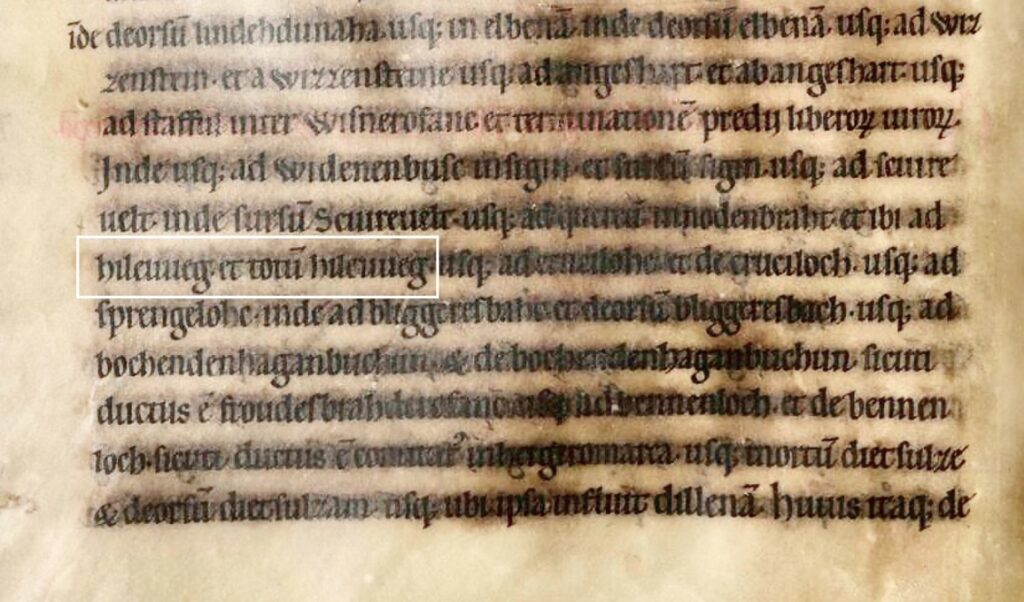 īde deorsū lindehdunaha. usq; in elbenā. inde deorsū elbenā. usq; ad wiz
zenstein. et a wizzensteine usq; ad angeshart. et ab angeshart. usq;
ad staffūl inter wisnerofanc. et terminationē predii liberoꝝ uiroꝝ.
Inde usq; ad widenenbusc in sigin. et sigin. usq; ad scuire
uelt. inde sursū Scuireuelt. usq; ad in nodenbraht. et ibi ad
hileuueg. et totū hileuueg. usq; ad et de cruciloch. usq; ad
sprengelohe. inde ad bliggeresbahc. et deorsū bliggeresbach. usq; ad
bochendenhaganbuchun. & de bochendenhaganbuchun. sicuti
ductus ē ad bennenloch. et de bennen
loch. sicuti ductus ē usq; mortū dietsulze
& deorsū dietsulzam. usq; ubi ipsa influit dillenā. huius itaq; de